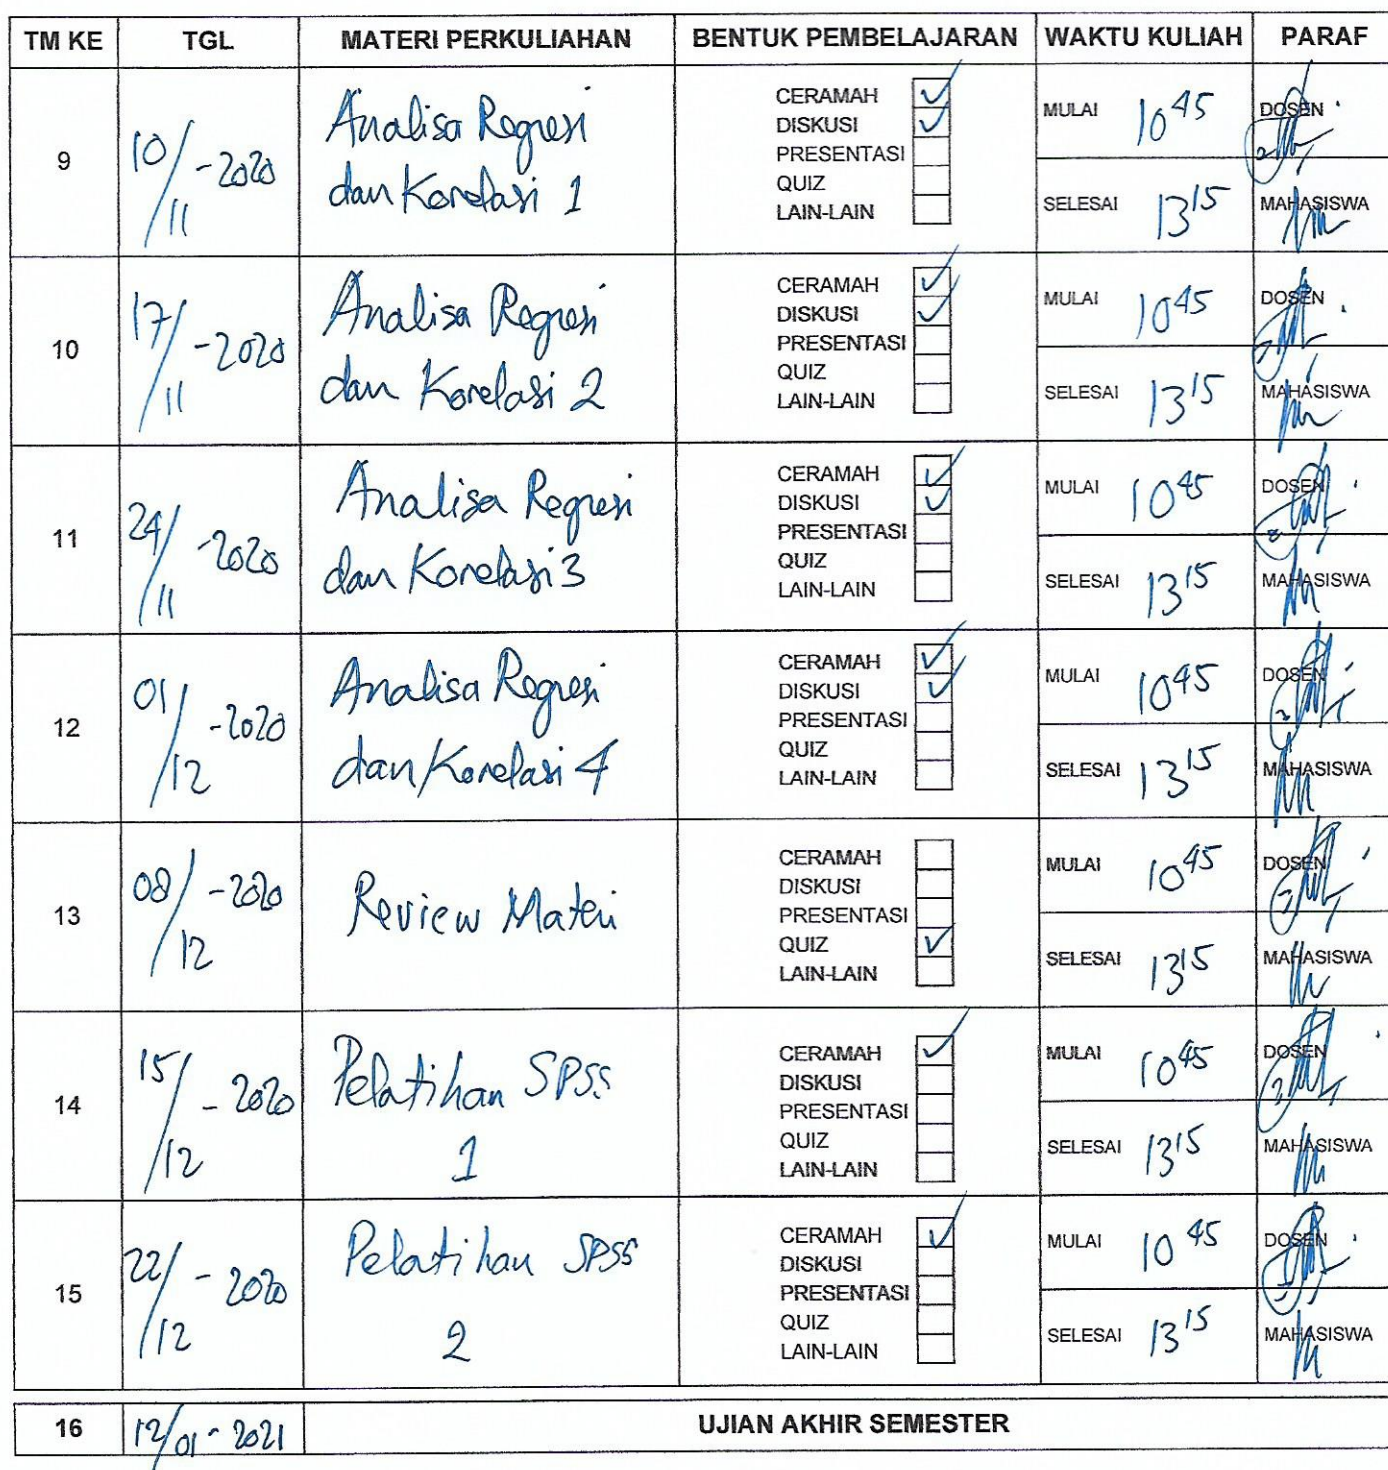 TM KE TGL MATERI PERKULIAHAN BENTUK PEMBELAJARAN WAKTU KULIAH PARAF
9 10/11 -2020 Analisa Regresi
dan Korelasi 1
CERAMAH ✓
DISKUSI ✓
PRESENTASI
QUIZ
LAIN-LAIN
MULAI 10 45
SELESAI 13 15
DOSEN
MAHASISWA
10 17/11 -2020 Analisa Regresi
dan Korelasi 2
CERAMAH ✓
DISKUSI ✓
PRESENTASI
QUIZ
LAIN-LAIN
MULAI 10 45
SELESAI 13 15
DOSEN
MAHASISWA
11 24/11 -2020 Analisa Regresi
dan Korelasi 3
CERAMAH ✓
DISKUSI ✓
PRESENTASI
QUIZ
LAIN-LAIN
MULAI 10 45
SELESAI 13 15
DOSEN
MAHASISWA
12 01/12 -2020 Analisa Regresi
dan Korelasi 4
CERAMAH ✓
DISKUSI ✓
PRESENTASI
QUIZ
LAIN-LAIN
MULAI 10 45
SELESAI 13 15
DOSEN
MAHASISWA
13 08/12 -2020 Review Materi
CERAMAH
DISKUSI
PRESENTASI
QUIZ ✓
LAIN-LAIN
MULAI 10 45
SELESAI 13 15
DOSEN
MAHASISWA
14 15/12 - 2020 Pelatihan SPSS
1
CERAMAH ✓
DISKUSI
PRESENTASI
QUIZ
LAIN-LAIN
MULAI 10 45
SELESAI 13 15
DOSEN
MAHASISWA
15 22/12 - 2020 Pelatihan SPSS
2
CERAMAH ✓
DISKUSI
PRESENTASI
QUIZ
LAIN-LAIN
MULAI 10 45
SELESAI 13 15
DOSEN
MAHASISWA
16 12/01 - 2021 UJIAN AKHIR SEMESTER